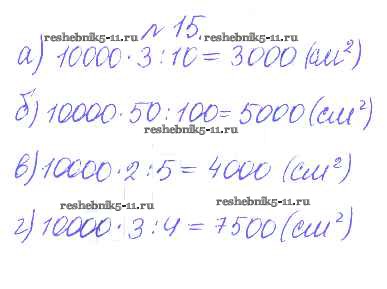 № 15.
reshebnik5-11.ru reshebnik5-11.ru
а) 10000·3:10=3000 (см²)
б) 10000·50:100=5000 (см²)
reshebnik5-11.ru
в) 10000·2:5=4000 (см²)
reshebnik5-11.ru reshebnik5-11.ru
г) 10000·3:4=7500 (см²)